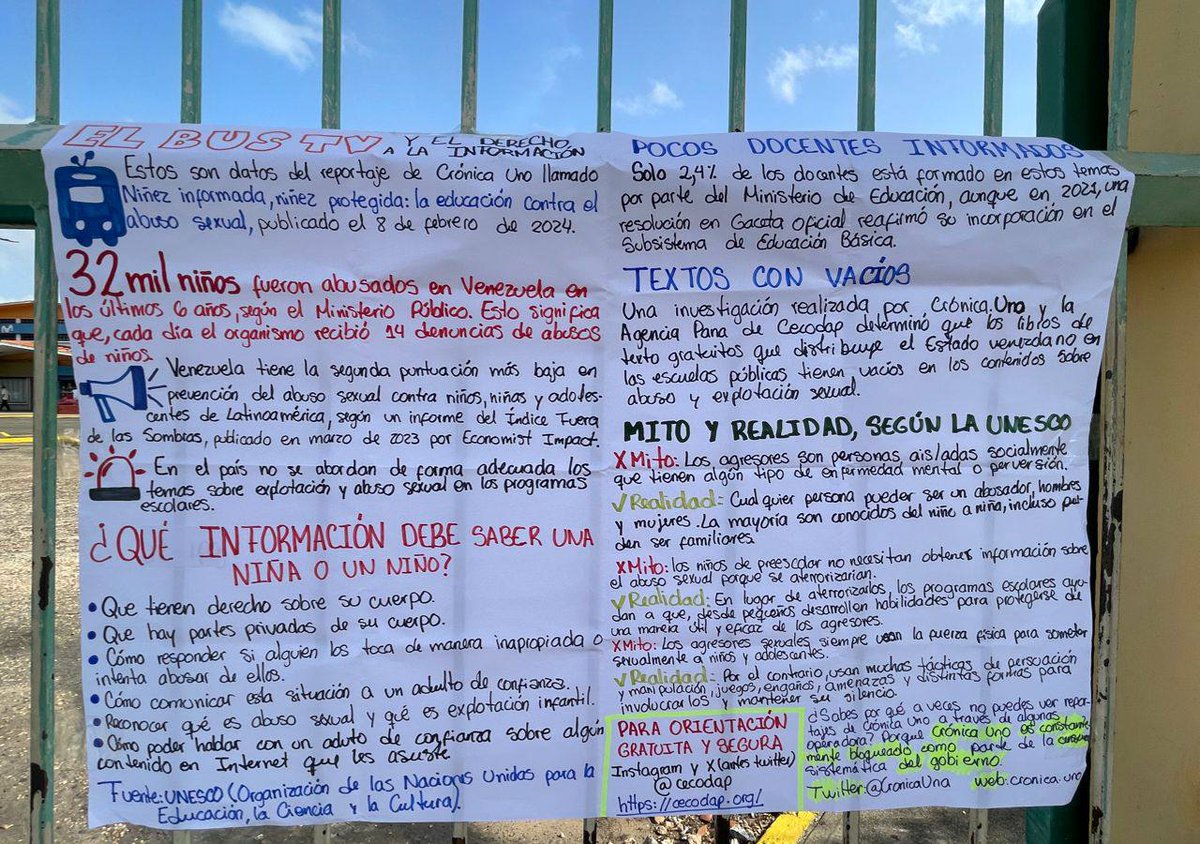 EL BUS TV Y EL DERECHO
A LA INFORMACIÓN
Estos son datos del reportaje de Crónica Uno llamado
Niñez informada, niñez protegida: la educación contra el
abuso sexual, publicado el 8 de febrero de 2024.
32 mil niños fueron abusados en Venezuela en
los últimos 6 años, según el Ministerio Público. Esto significa
que, cada día el organismo recibió 14 denuncias de abusos
de niños.
Venezuela tiene la segunda puntuación más baja en
prevención del abuso sexual contra niños, niñas y adoles-
centes de Latinoamérica, según un informe del Índice Fuera
de las Sombras, publicado en marzo de 2023 por Economist Impact.
En el país no se abordan de forma adecuada los
temas sobre explotación y abuso sexual en los programas
escolares.
¿QUÉ INFORMACIÓN DEBE SABER UNA
NIÑA O UN NIÑO?
• Que tienen derecho sobre su cuerpo.
• Que hay partes privadas de su cuerpo.
• Cómo responder si alguien los toca de manera inapropiada o
intenta abusar de ellos.
• Cómo comunicar esta situación a un adulto de confianza.
• Reconocer qué es abuso sexual y qué es explotación infantil.
• Cómo poder hablar con un aduto de confianza sobre algún
contenido en Internet que les asuste.
Fuente: UNESCO (Organización de las Naciones Unidas para la
Educación, la Ciencia y la Cultura).
POCOS DOCENTES INFORMADOS
Solo 2,4% de los docentes está formado en estos temas
por parte del Ministerio de Educación, aunque en 2021, una
resolución en Gaceta oficial reafirmó su incorporación en el
Subsistema de Educación Básica.
TEXTOS CON VACÍOS
Una investigación realizada por Crónica.Uno y la
Agencia Pana de Cecodap determinó que los libros de
texto gratuitos que distribuye el Estado venezolano en
las escuelas públicas tienen vacíos en los contenidos sobre
abuso y explotación sexual.
MITO Y REALIDAD, SEGÚN LA UNESCO
X Mito: Los agresores son personas aisladas socialmente
que tienen algún tipo de enfermedad mental o perversión.
✓ Realidad: Cualquier persona pueder ser un abusador, hombres
y mujeres. La mayoría son conocidos del niño a niña, incluso pue-
den ser familiares.
X Mito: los niños de preescolar no necesitan obtener información sobre
el abuso sexual porque se aterrorizarían.
✓ Realidad: En lugar de aterrorizarlos, los programas escolares ayu-
dan a que, desde pequeños desarrollen habilidades para protegerse de
una manera útil y eficaz de los agresores.
X Mito: Los agresores sexuales siempre usan la fuerza física para someter
sexualmente a niños y adolescentes.
✓ Realidad: Por el contrario, usan muchas tácticas de persuación
y manipulación, juegos, engaños, amenazas y distintas formas para
involucrar los y mantener su silencio.
PARA ORIENTACIÓN
GRATUITA Y SEGURA
Instagram y X (antes twitter)
@cecodap
https://cecodap.org/
¿Sabes por qué a veces no puedes ver repor-
tajes de Crónica Uno a través de algunas
operadoras? Porque Crónica Uno es constante-
mente bloqueado como parte de la censura
sistemática del gobierno.
Twitter:@CronicaUna web:cronica.uno